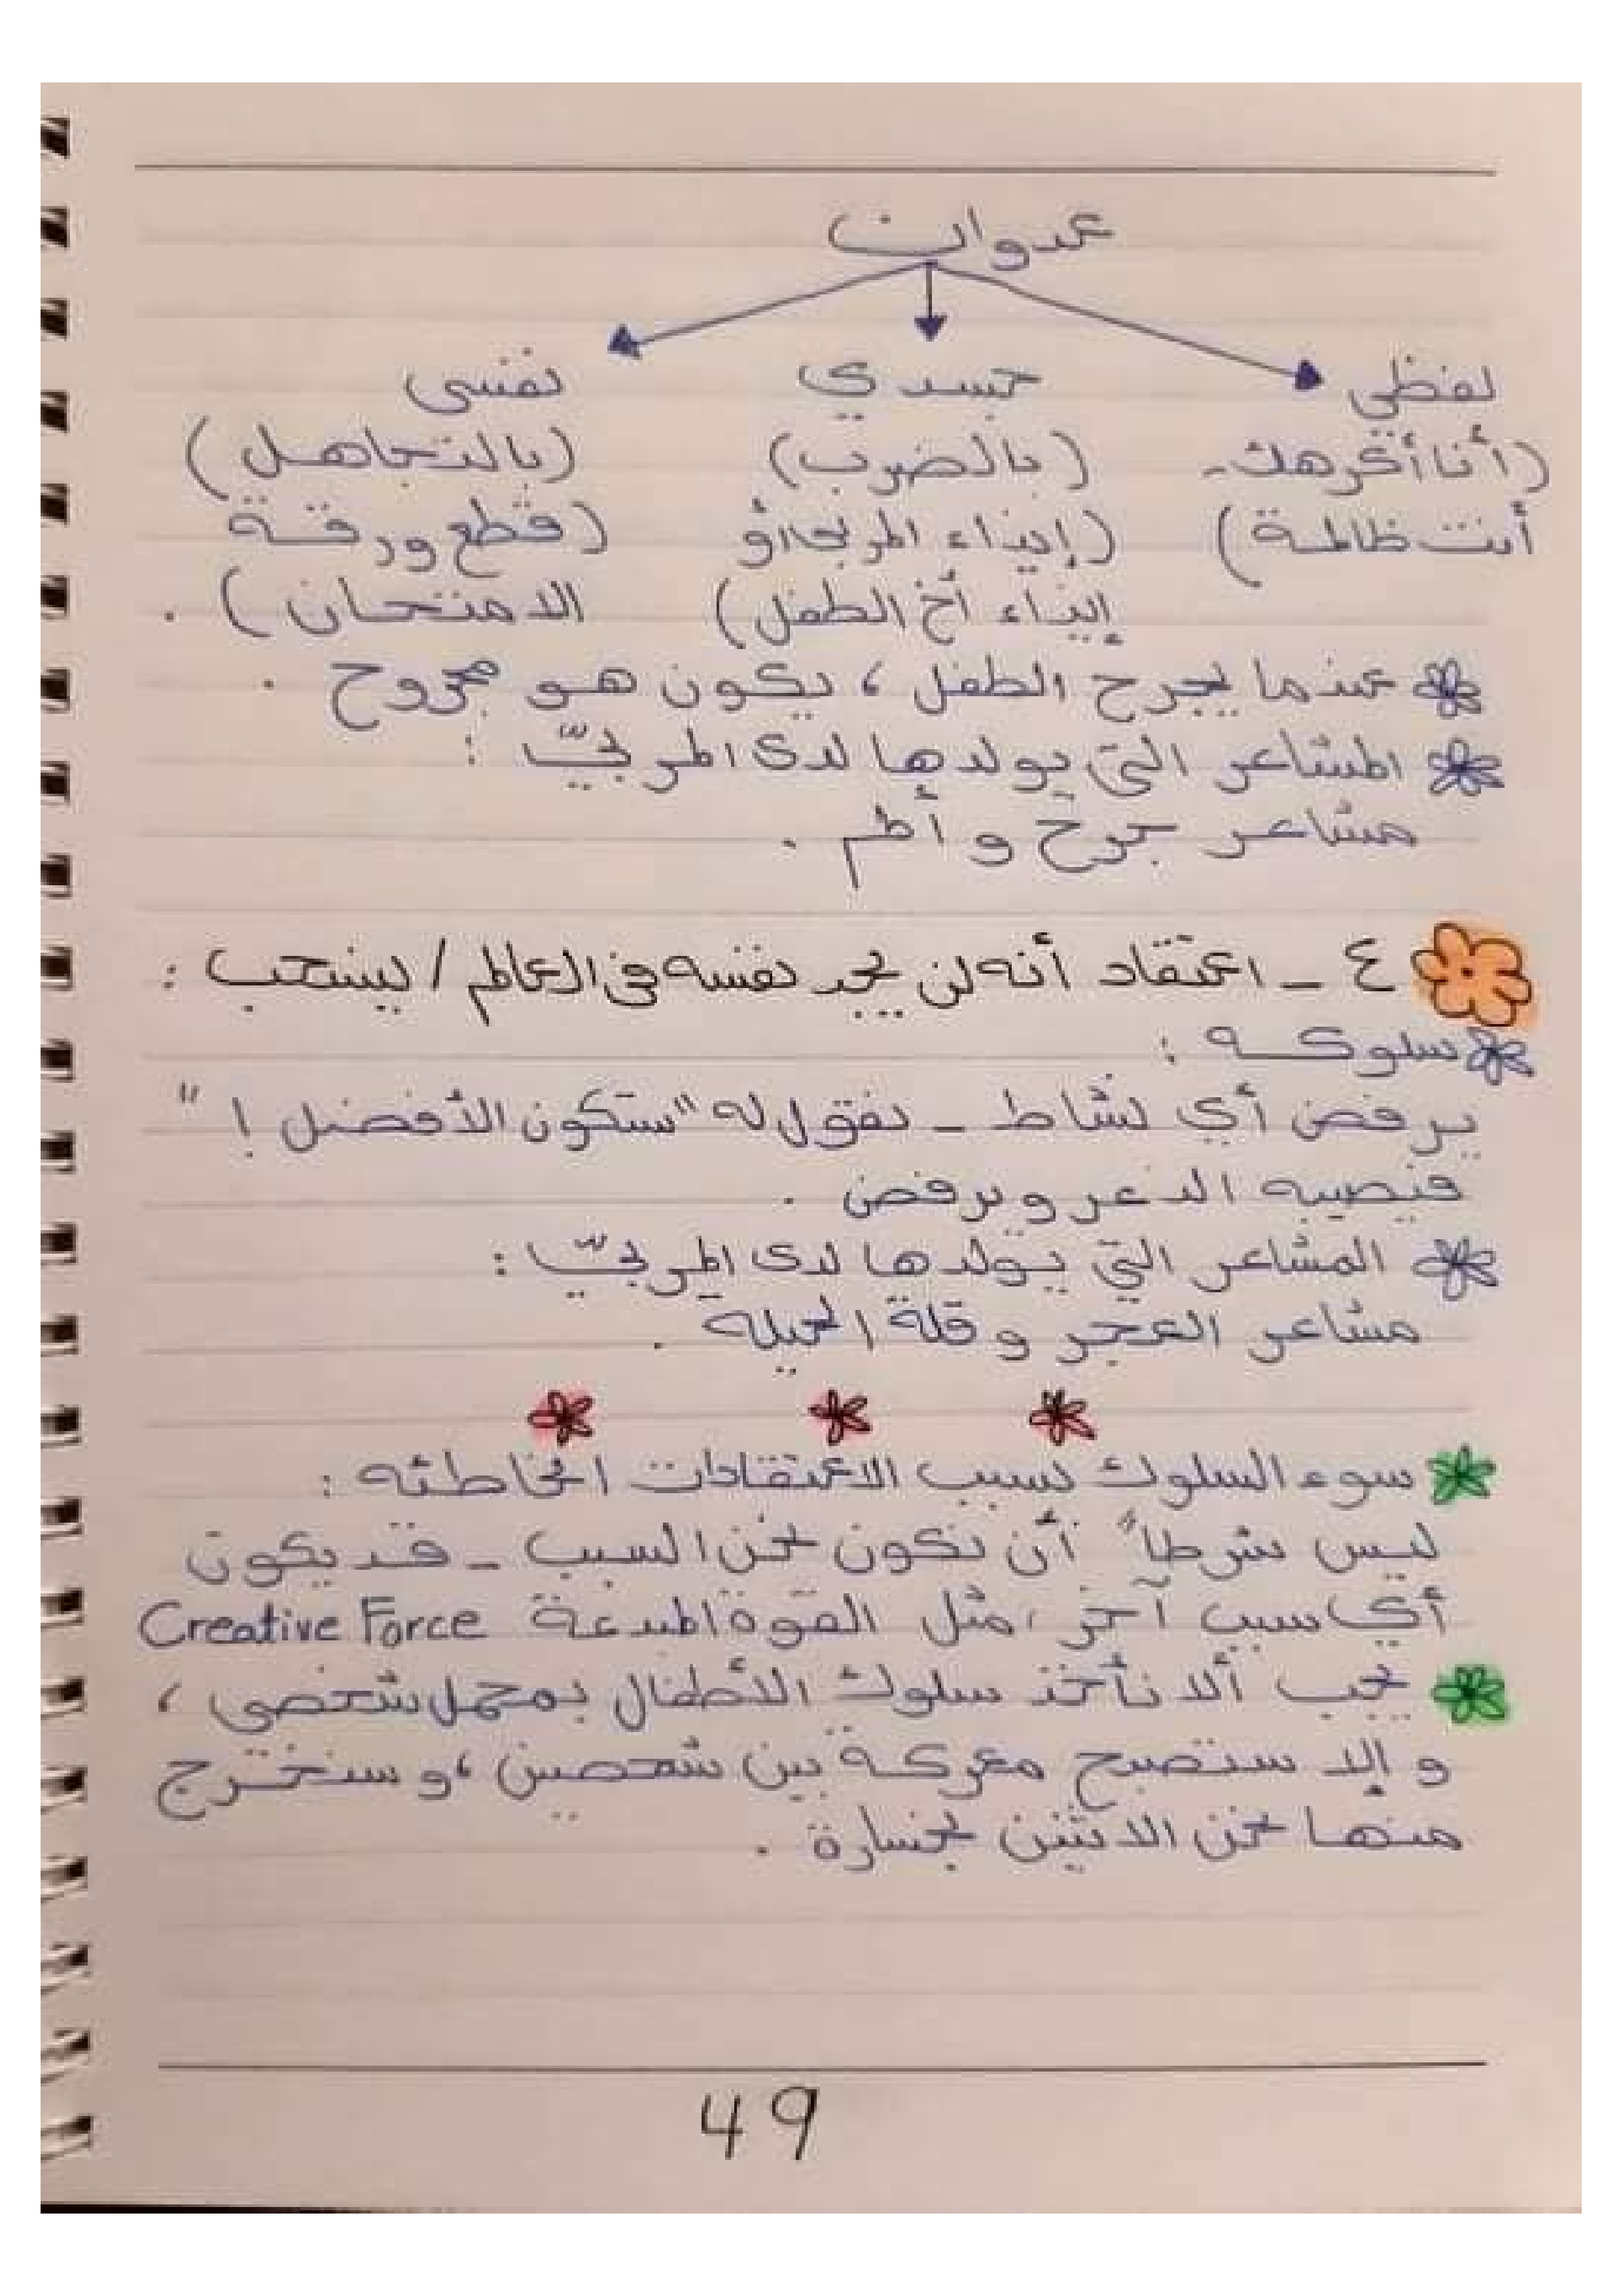 عدوان
لفظي جسدي نفسى
(أنا أكرهك - (بالضرب) (بالتجاهل)
أنت ظالمة) (إيذاء المربي أو (قطع ورقة
إيذاء أخ الطفل) الامتحان) .
عندما يجرح الطفل ، يكون هو مجروح .
المشاعر التي يولدها لدى المربيّ :
مشاعر جرح وألم .
٤ - اعتقاد أنه لن يجد نفسه فى العالم / لينسحب :
سلوكه :
يرفض أي نشاط - نقول له "ستكون الأفضل ! "
فيصيبه الذعر ويرفض .
المشاعر التي يولدها لدى المربيّ :
مشاعر العجز وقلة الحيلة .
سوء السلوك بسبب الاعتقادات الخاطئه :
ليس شرطاً أن نكون نحن السبب - قد يكون
أي سبب آخر ، مثل القوة المبدعة Creative Force
يجب ألا نأخذ سلوك الأطفال بمحمل شخصي ،
و إلا ستصبح معركة بين شخصين ، وسنخرج
منها نحن الاثنين بخسارة .
49